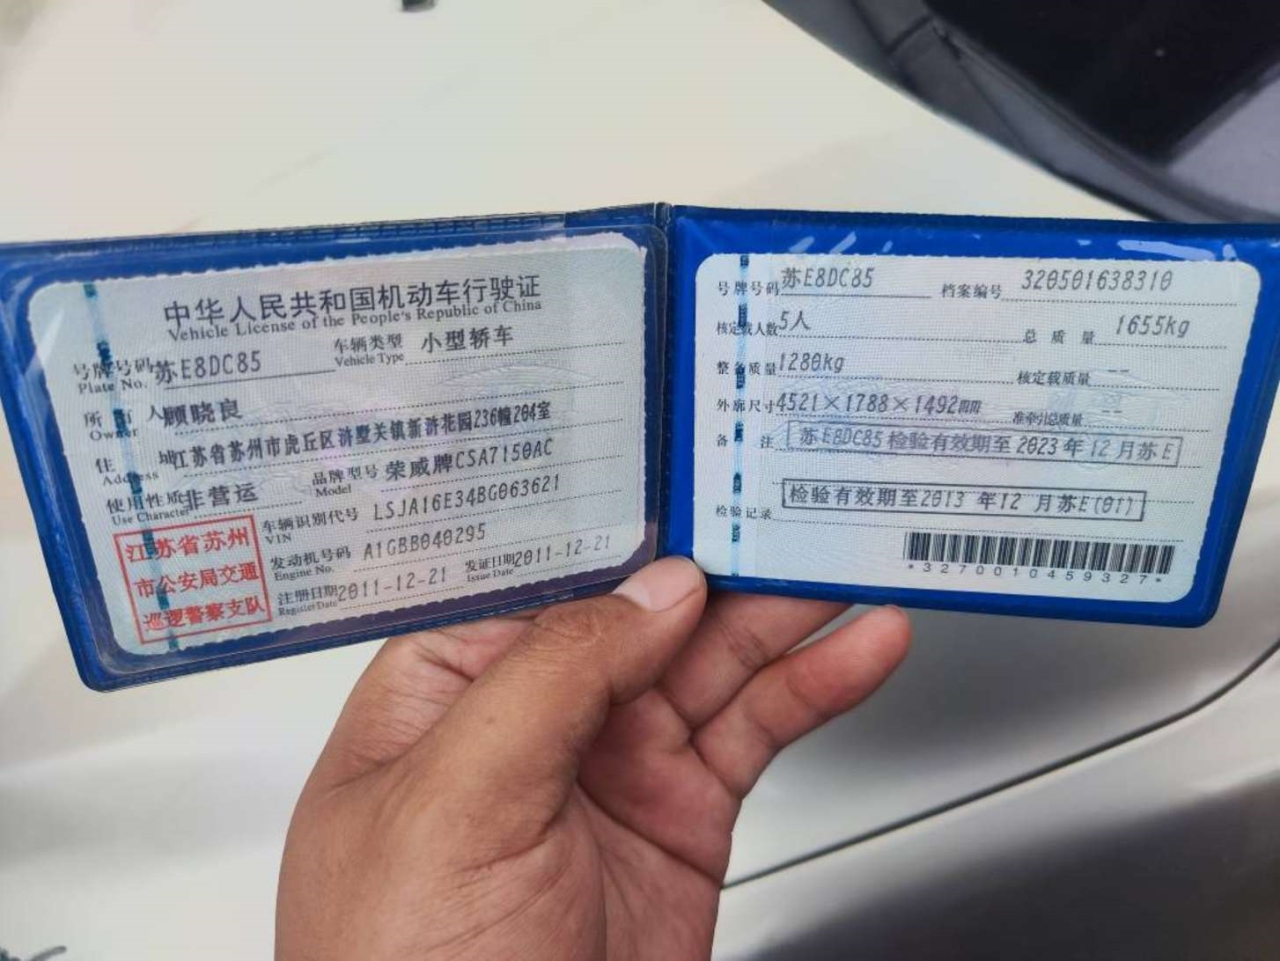 中华人民共和国机动车行驶证
Vehicle License of the People's Republic of China
号牌号码 苏E8DC85 车辆类型 小型轿车
Plate No. Vehicle Type
所有人 顾晓良
Owner
住址 江苏省苏州市虎丘区浒墅关镇新浒花园236幢204室
Address
使用性质 非营运 品牌型号 荣威牌CSA7150AC
Use Character Model
车辆识别代号 LSJA16E34BG063621
VIN
发动机号码 A1GBB040295
Engine No.
注册日期 2011-12-21 发证日期 2011-12-21
Register Date Issue Date
江苏省苏州
市公安局交通
巡逻警察支队
号牌号码 苏E8DC85 档案编号 320501638310
核定载人数 5人 总质量 1655kg
整备质量 1280kg 核定载质量 --
外廓尺寸 4521×1788×1492mm 准牵引总质量 --
备注 苏E8DC85 检验有效期至 2023 年 12 月苏E
检验有效期至2013 年12 月苏E(01)
检验记录
*3270010459327*